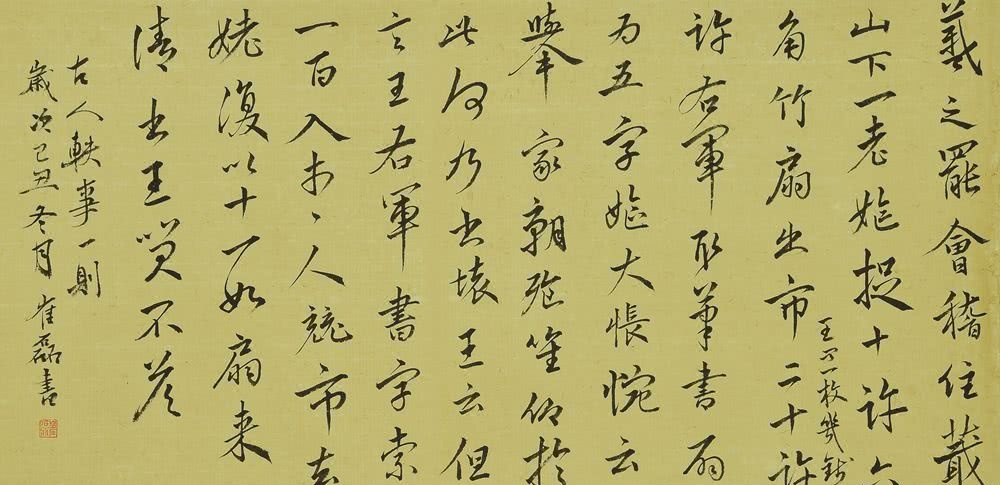 羲之罷會稽住蕺
山下一老嫗捉十許六
角竹扇出市
王問一枚幾錢
二十許
許右軍取筆書扇
為五字嫗大悵惋云
舉家朝飧唯仰於
此何乃書壞王云但
言王右軍書字索
一百入市市人競市去
姥復以十一數扇来
請書王笑不答
古人軼事一則
歲次己丑冬月崔磊書